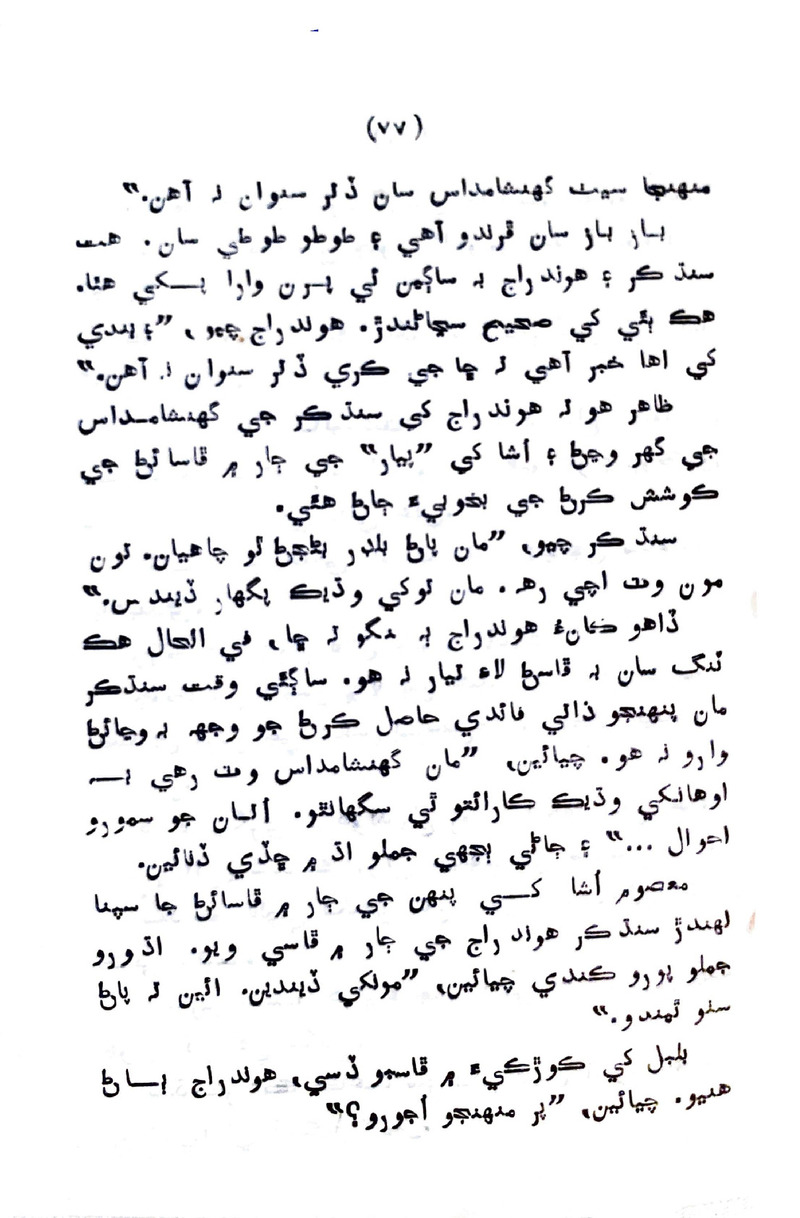 (۷۷)
منهنجا سيٺ گهنشامداس سان ڏاڍا سنوان نہ آهن.“
باز باز سان ڦرندو آهي ۽ طوطو طوطي سان. هت
سنڌ ڪر ۽ هوندراج بہ ساڳين ئي پرن وارا پکي هئا.
هڪ ٻئي کي صحيح سڃاڻندڙ. هوندراج چيو، ”۽ بندي
کي اها خبر آهي تہ ڇا جي ڪري ڏاڍا سنوان نہ آهن.“
ظاهر هو تہ هوندراج کي سنڌ ڪر جي گهنشامداس
جي گهر وڃڻ ۽ اُشا کي ”پيار“ جي ڄار ۾ ڦاسائڻ جي
ڪوشش ڪرڻ جي بخوبيءَ ڄاڻ هئي.
سنڌ ڪر چيو، ”مان پاڻ بلڊر بڻجڻ ٿو چاهيان. تون
مون وٽ اچي رهہ. مان توکي وڌيڪ پگهار ڏيندس.“
ڏاهو ڪانءُ هوندراج بہ نگو تہ ڇا، في الحال هڪ
ٽنگ سان بہ ڦاسڻ لاءِ تيار نہ هو. ساڳئي وقت سنڌڪر
مان پنهنجو ذاتي فائدي حاصل ڪرڻ جو وجهہ بہ وڃائڻ
وارو نہ هو. چيائين، ”مان گهنشامداس وٽ رهي بہ
اوهانکي وڌيڪ ڪارائتو ٿي سگهانٿو. اُتان جو سمورو
احوال ...“ ۽ ڄاڻي ٻجهي جملو اڌ ۾ ڇڏي ڏنائين.
معصوم اُشا کي پنهن جي ڄار ۾ ڦاسائڻ جا سپنا
لهندڙ سنڌ ڪر هوندراج جي ڄار ۾ ڦاسي ويو. اڌورو
جملو پورو ڪندي چيائين، ”مولکي ڏيندين. ائين تہ پاڻ
سٺو ٿيندو.“
بلبل کي ڪوڙڪيءَ ۾ ڦاسجو ڏسي، هوندراج ٻاڻ
هنيو. چيائين، ”پر منهنجو اُجورو؟“